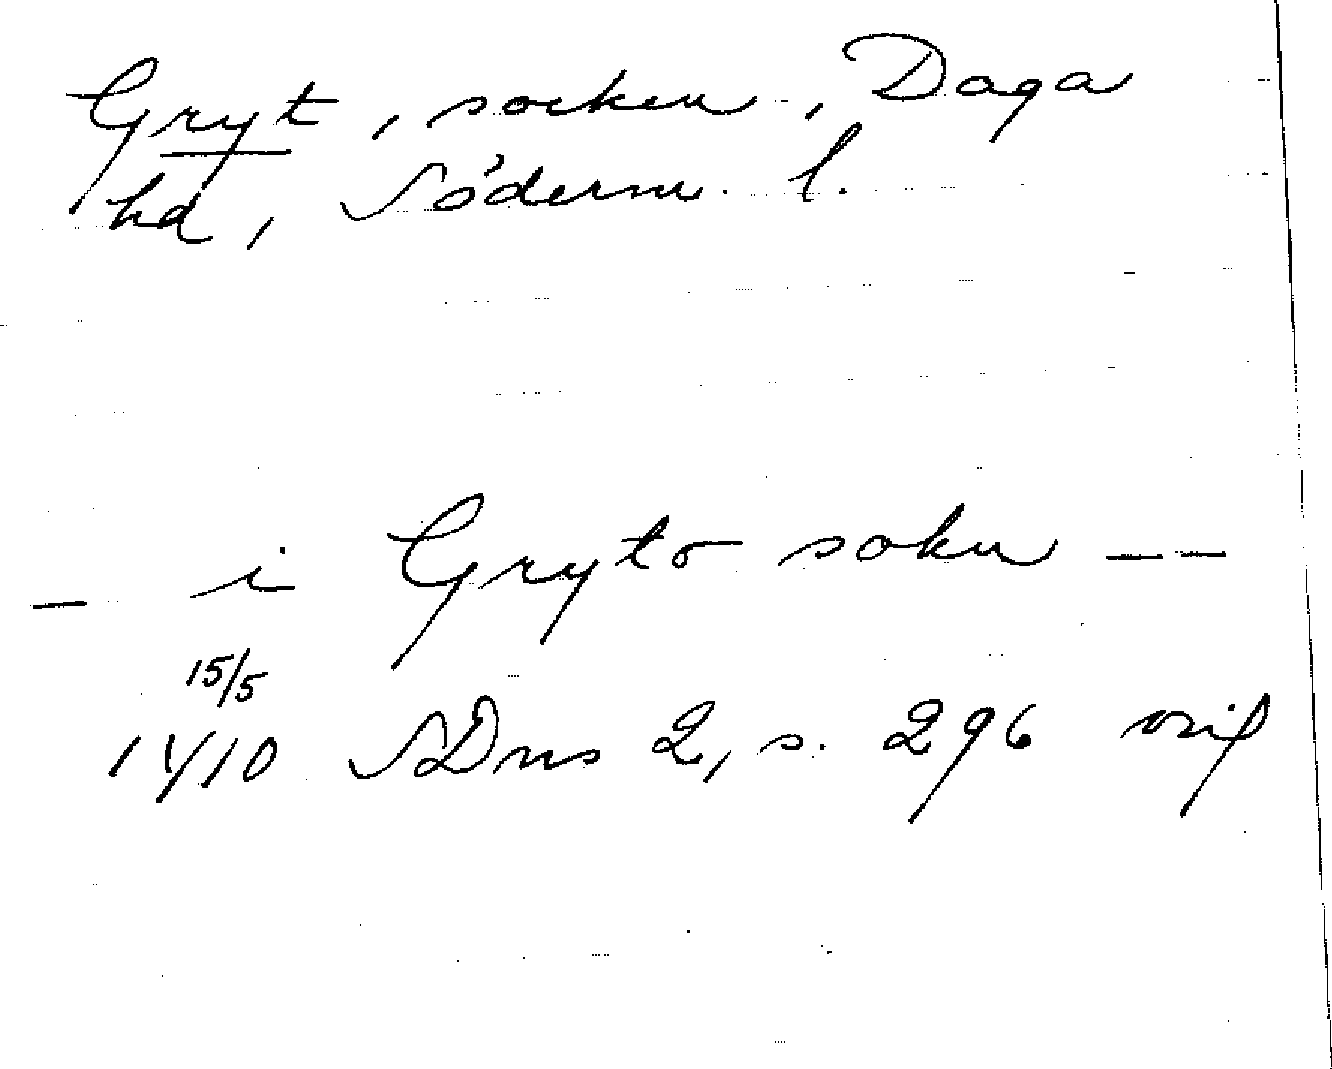 Gryt, socken, Daga
hd, Söderm. l.
- i Gryto sokn - -
15/5
1410 SDns 2, s. 296 orig